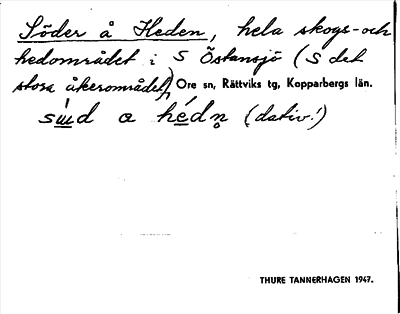 Söder å Heden, hela skogs- och
hedområdet i S Östansjö (S det
stora åkerområdet), Ore sn, Rättviks tg, Kopparbergs län.
a hédn̥ (dativ!)
THURE TANNERHAGEN 1947.